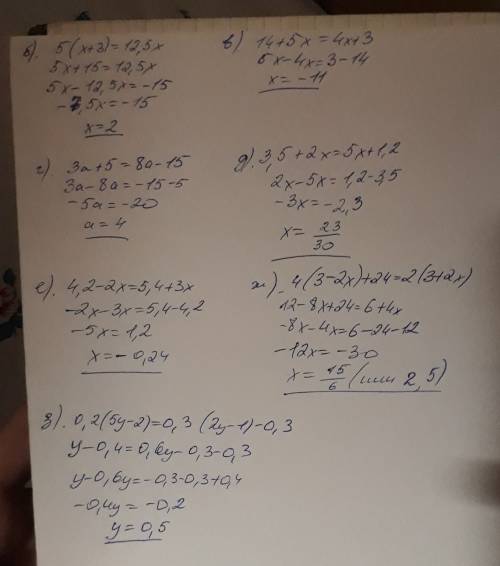 б). 5(x+3)=12,5x
5x+15=12,5x
5x-12,5x=-15
-7,5x=-15
x=2
в). 14+5x=4x+3
5x-4x=3-14
x=-11
г). 3a+5=8a-15
3a-8a=-15-5
-5a=-20
a=4
д). 3,5+2x=5x+1,2
2x-5x=1,2-3,5
-3x=-2,3
x=23/30
е). 4,2-2x=5,4+3x
-2x-3x=5,4-4,2
-5x=1,2
x=-0,24
ж). 4(3-2x)+24=2(3+2x)
12-8x+24=6+4x
-8x-4x=6-24-12
-12x=-30
x=15/6 (или 2,5)
з). 0,2(5y-2)=0,3(2y-1)-0,3
y-0,4=0,6y-0,3-0,3
y-0,6y=-0,3-0,3+0,4
-0,4y=-0,2
y=0,5